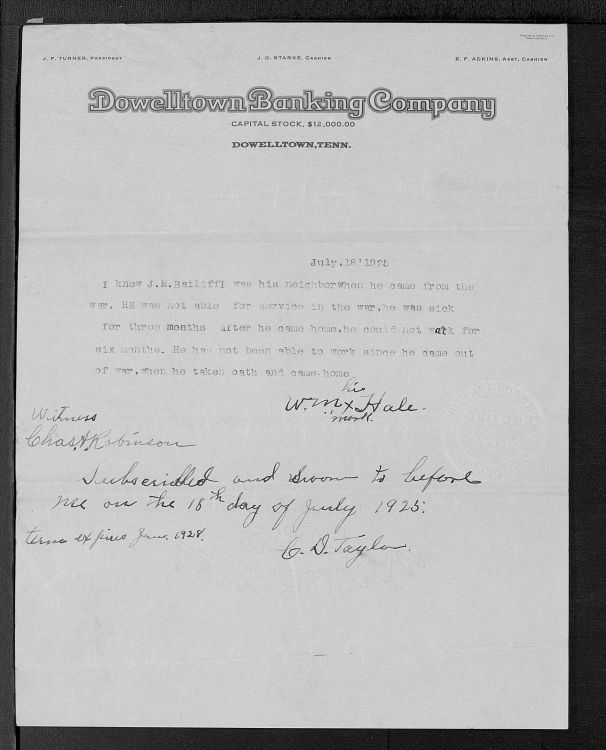 J. F. TURNER, PRESIDENT J. C. STARKE, CASHIER E. F. ADKINS, ASST. CASHIER
Dowelltown Banking Company
CAPITAL STOCK, $12,000.00
DOWELLTOWN, TENN.
July.18'1925
I knew J.K.BailiffI was his neighborwhen he came from the
war. HE was not able for service in the war,he was sick
for three months after he came home.he could not walk for
six months. He has not been able to work since he came out
of war,when he taken oath and came home
his
W.M x Hale.
mark.
Witness
Chas. A. Robinson
Subscribed and sworn to before
me on the 18th day of July 1925.
term expires Jan. 1928.
C. D. Taylor.